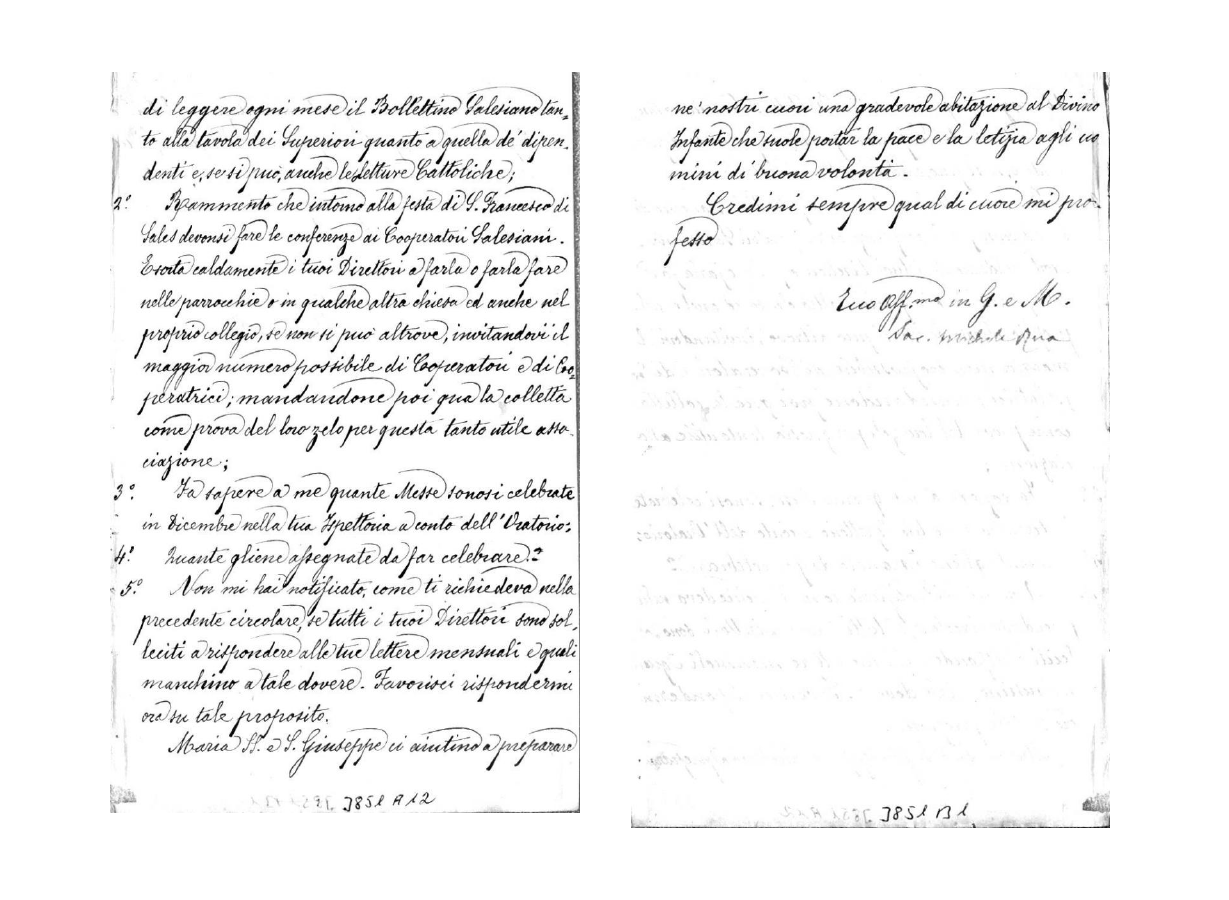 di leggere ogni mese il Bollettino Salesiano tan-
to alla tavola dei Superiori quanto a quella de' dipen-
denti e, se si può, anche le Letture Cattoliche;
2.° Rammento che intorno alla festa di S. Francesco di
Sales devonsi fare le conferenze ai Cooperatori Salesiani.
Esorta caldamente i tuoi Direttori a farla o farla fare
nelle parrocchie o in qualche altra chiesa ed anche nel
proprio collegio, se non si può altrove, invitandovi il
maggior numero possibile di Cooperatori e di Coo-
peratrici; mandandone poi qua la colletta
come prova del loro zelo per questa tanto utile asso-
ciazione;
3.° Fa sapere a me quante Messe sonosi celebrate
in Dicembre nella tua Ispettoria a conto dell'Oratorio:
4.° Quante gliene assegnate da far celebrare?
5.° Non mi hai notificato, come ti richiedeva nella
precedente circolare, se tutti i tuoi Direttori sono sol-
leciti a rispondere alle tue lettere mensuali e quali
manchino a tale dovere. Favorisci rispondermi
ora su tale proposito.
Maria SS. e S. Giuseppe ci aiutino a preparare
3851 A 12
ne' nostri cuori una gradevole abitazione al Divino
Infante che suole portar la pace e la letizia agli uo
mini di buona volontà.
Credimi sempre qual di cuore mi pro-
fesso
Tuo Aff.mo in G. e M.
Sac. Michele Rua
3851 B 1